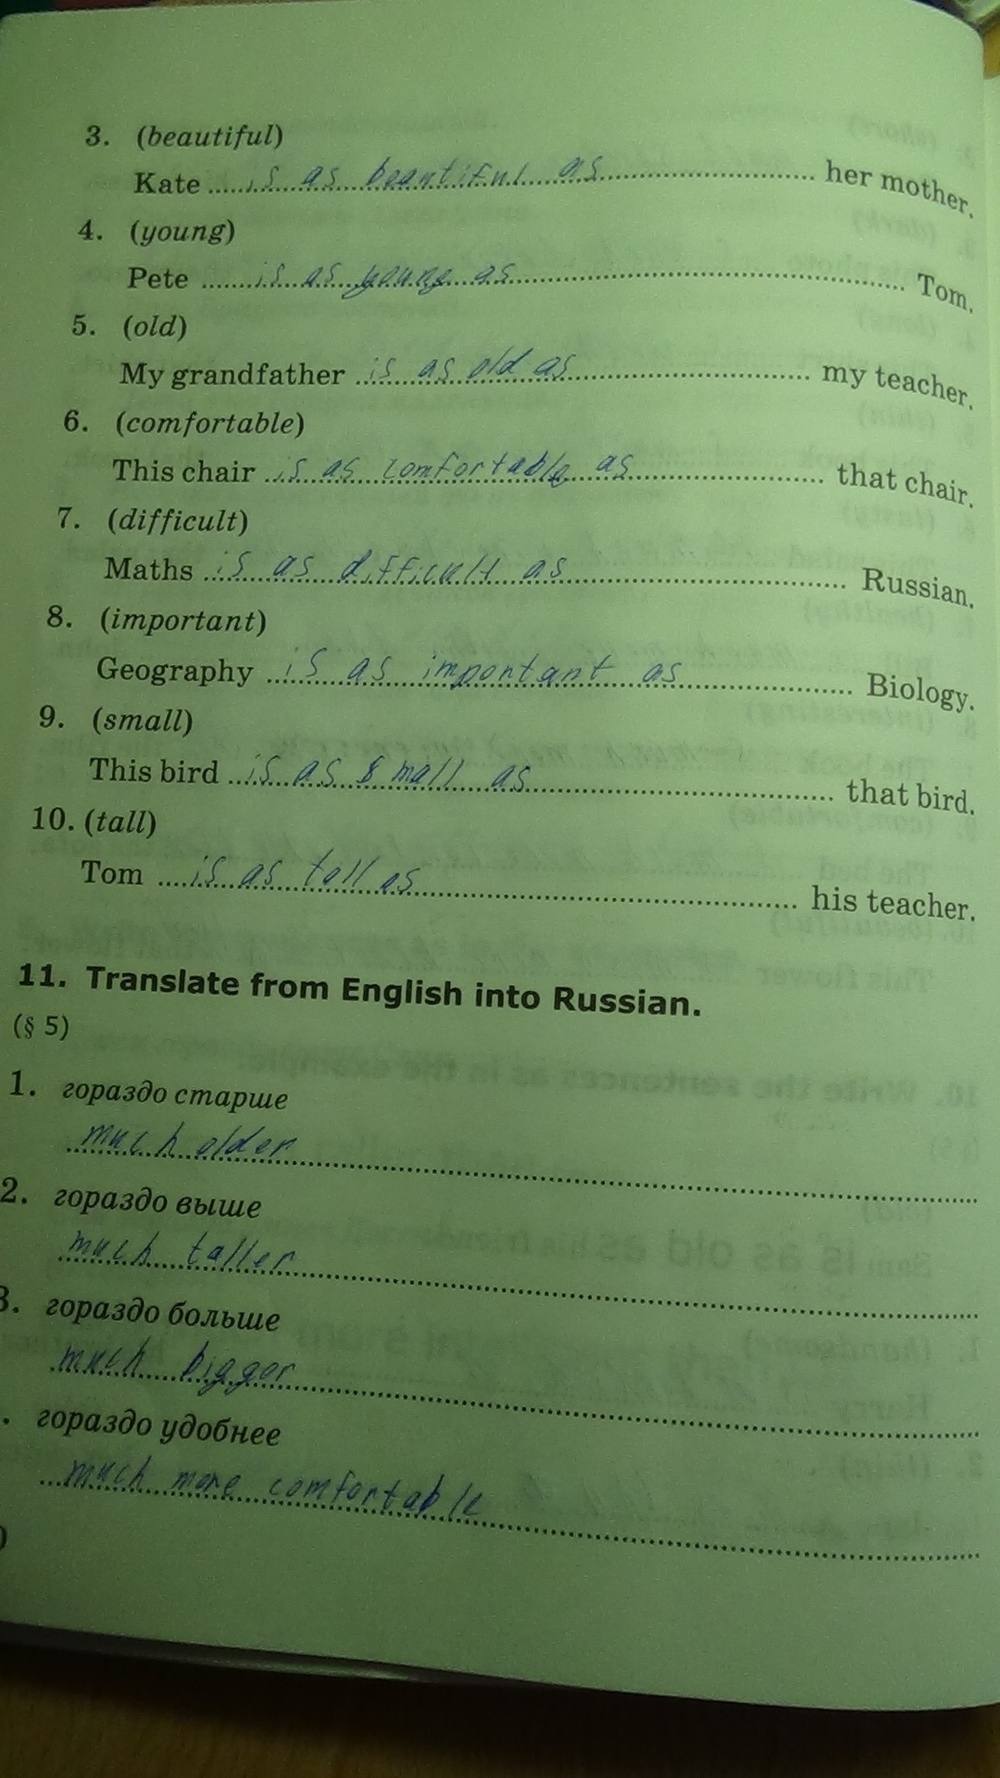 3. (beautiful)
Kate ...is as beautiful as... her mother.
4. (young)
Pete ...is as young as... Tom.
5. (old)
My grandfather ...is as old as... my teacher.
6. (comfortable)
This chair ...is as comfortable as... that chair.
7. (difficult)
Maths ...is as difficult as... Russian.
8. (important)
Geography ...is as important as... Biology.
9. (small)
This bird ...is as small as... that bird.
10. (tall)
Tom ...is as tall as... his teacher.
11. Translate from English into Russian.
(§ 5)
1. гораздо старше
much older
2. гораздо выше
much taller
3. гораздо больше
much bigger
. гораздо удобнее
much more comfortable